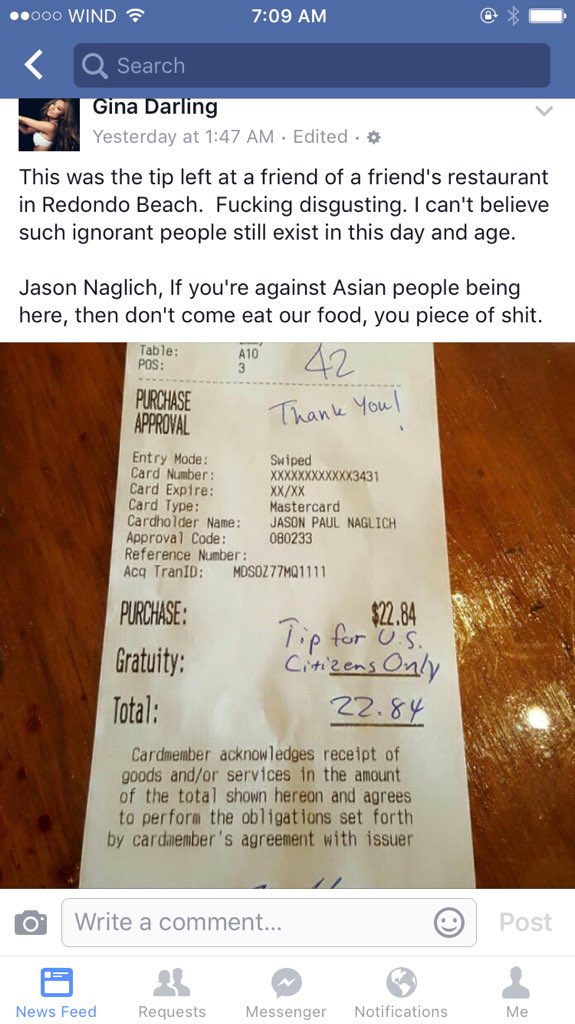 WIND
7:09 AM
Search
Gina Darling
Yesterday at 1:47 AM · Edited ·
This was the tip left at a friend of a friend's restaurant
in Redondo Beach.  Fucking disgusting. I can't believe
such ignorant people still exist in this day and age.
Jason Naglich, If you're against Asian people being
here, then don't come eat our food, you piece of shit.
Table: A10
POS: 3
42
PURCHASE
APPROVAL
Thank You!
Entry Mode: Swiped
Card Number: XXXXXXXXXXXX3431
Card Expire: XX/XX
Card Type: Mastercard
Cardholder Name: JASON PAUL NAGLICH
Approval Code: 080233
Reference Number:
Acq TranID: MDSOZ77MQ1111
PURCHASE: $22.84
Gratuity: Tip for U.S.
Citizens Only
Total: 22.84
Cardmember acknowledges receipt of
goods and/or services in the amount
of the total shown hereon and agrees
to perform the obligations set forth
by cardmember's agreement with issuer
Write a comment...
Post
News Feed
Requests
Messenger
Notifications
Me